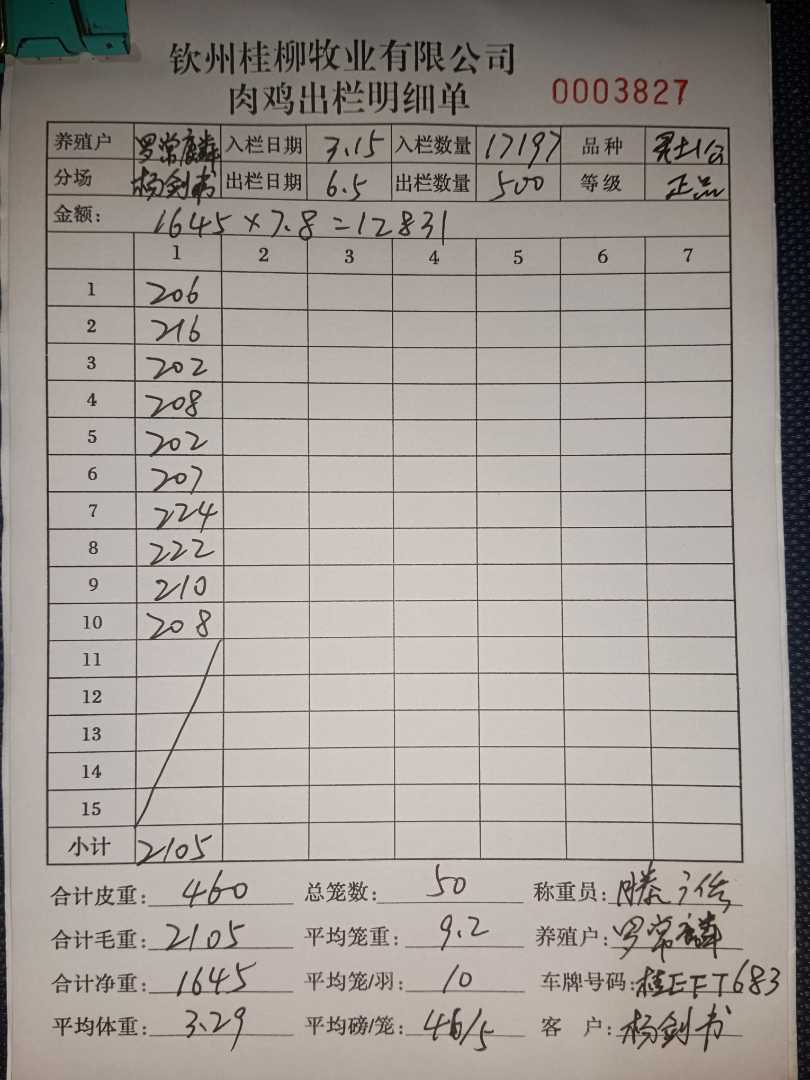 钦州桂柳牧业有限公司
肉鸡出栏明细单 0003827
养殖户 罗常麟 入栏日期 3.15 入栏数量 17197 品种
分场 杨剑书 出栏日期 6.5 出栏数量 500 等级 正品
金额: 1645×7.8=12831
1 2 3 4 5 6 7
1 206
2 216
3 202
4 208
5 202
6 207
7 224
8 222
9 210
10 208
11
12
13
14
15
小计 2105
合计皮重: 460 总笼数: 50 称重员:
合计毛重: 2105 平均笼重: 9.2 养殖户: 罗常麟
合计净重: 1645 平均笼/羽: 10 车牌号码: 桂EFT683
平均体重: 3.29 平均磅/笼: 46/5 客 户: 杨剑书